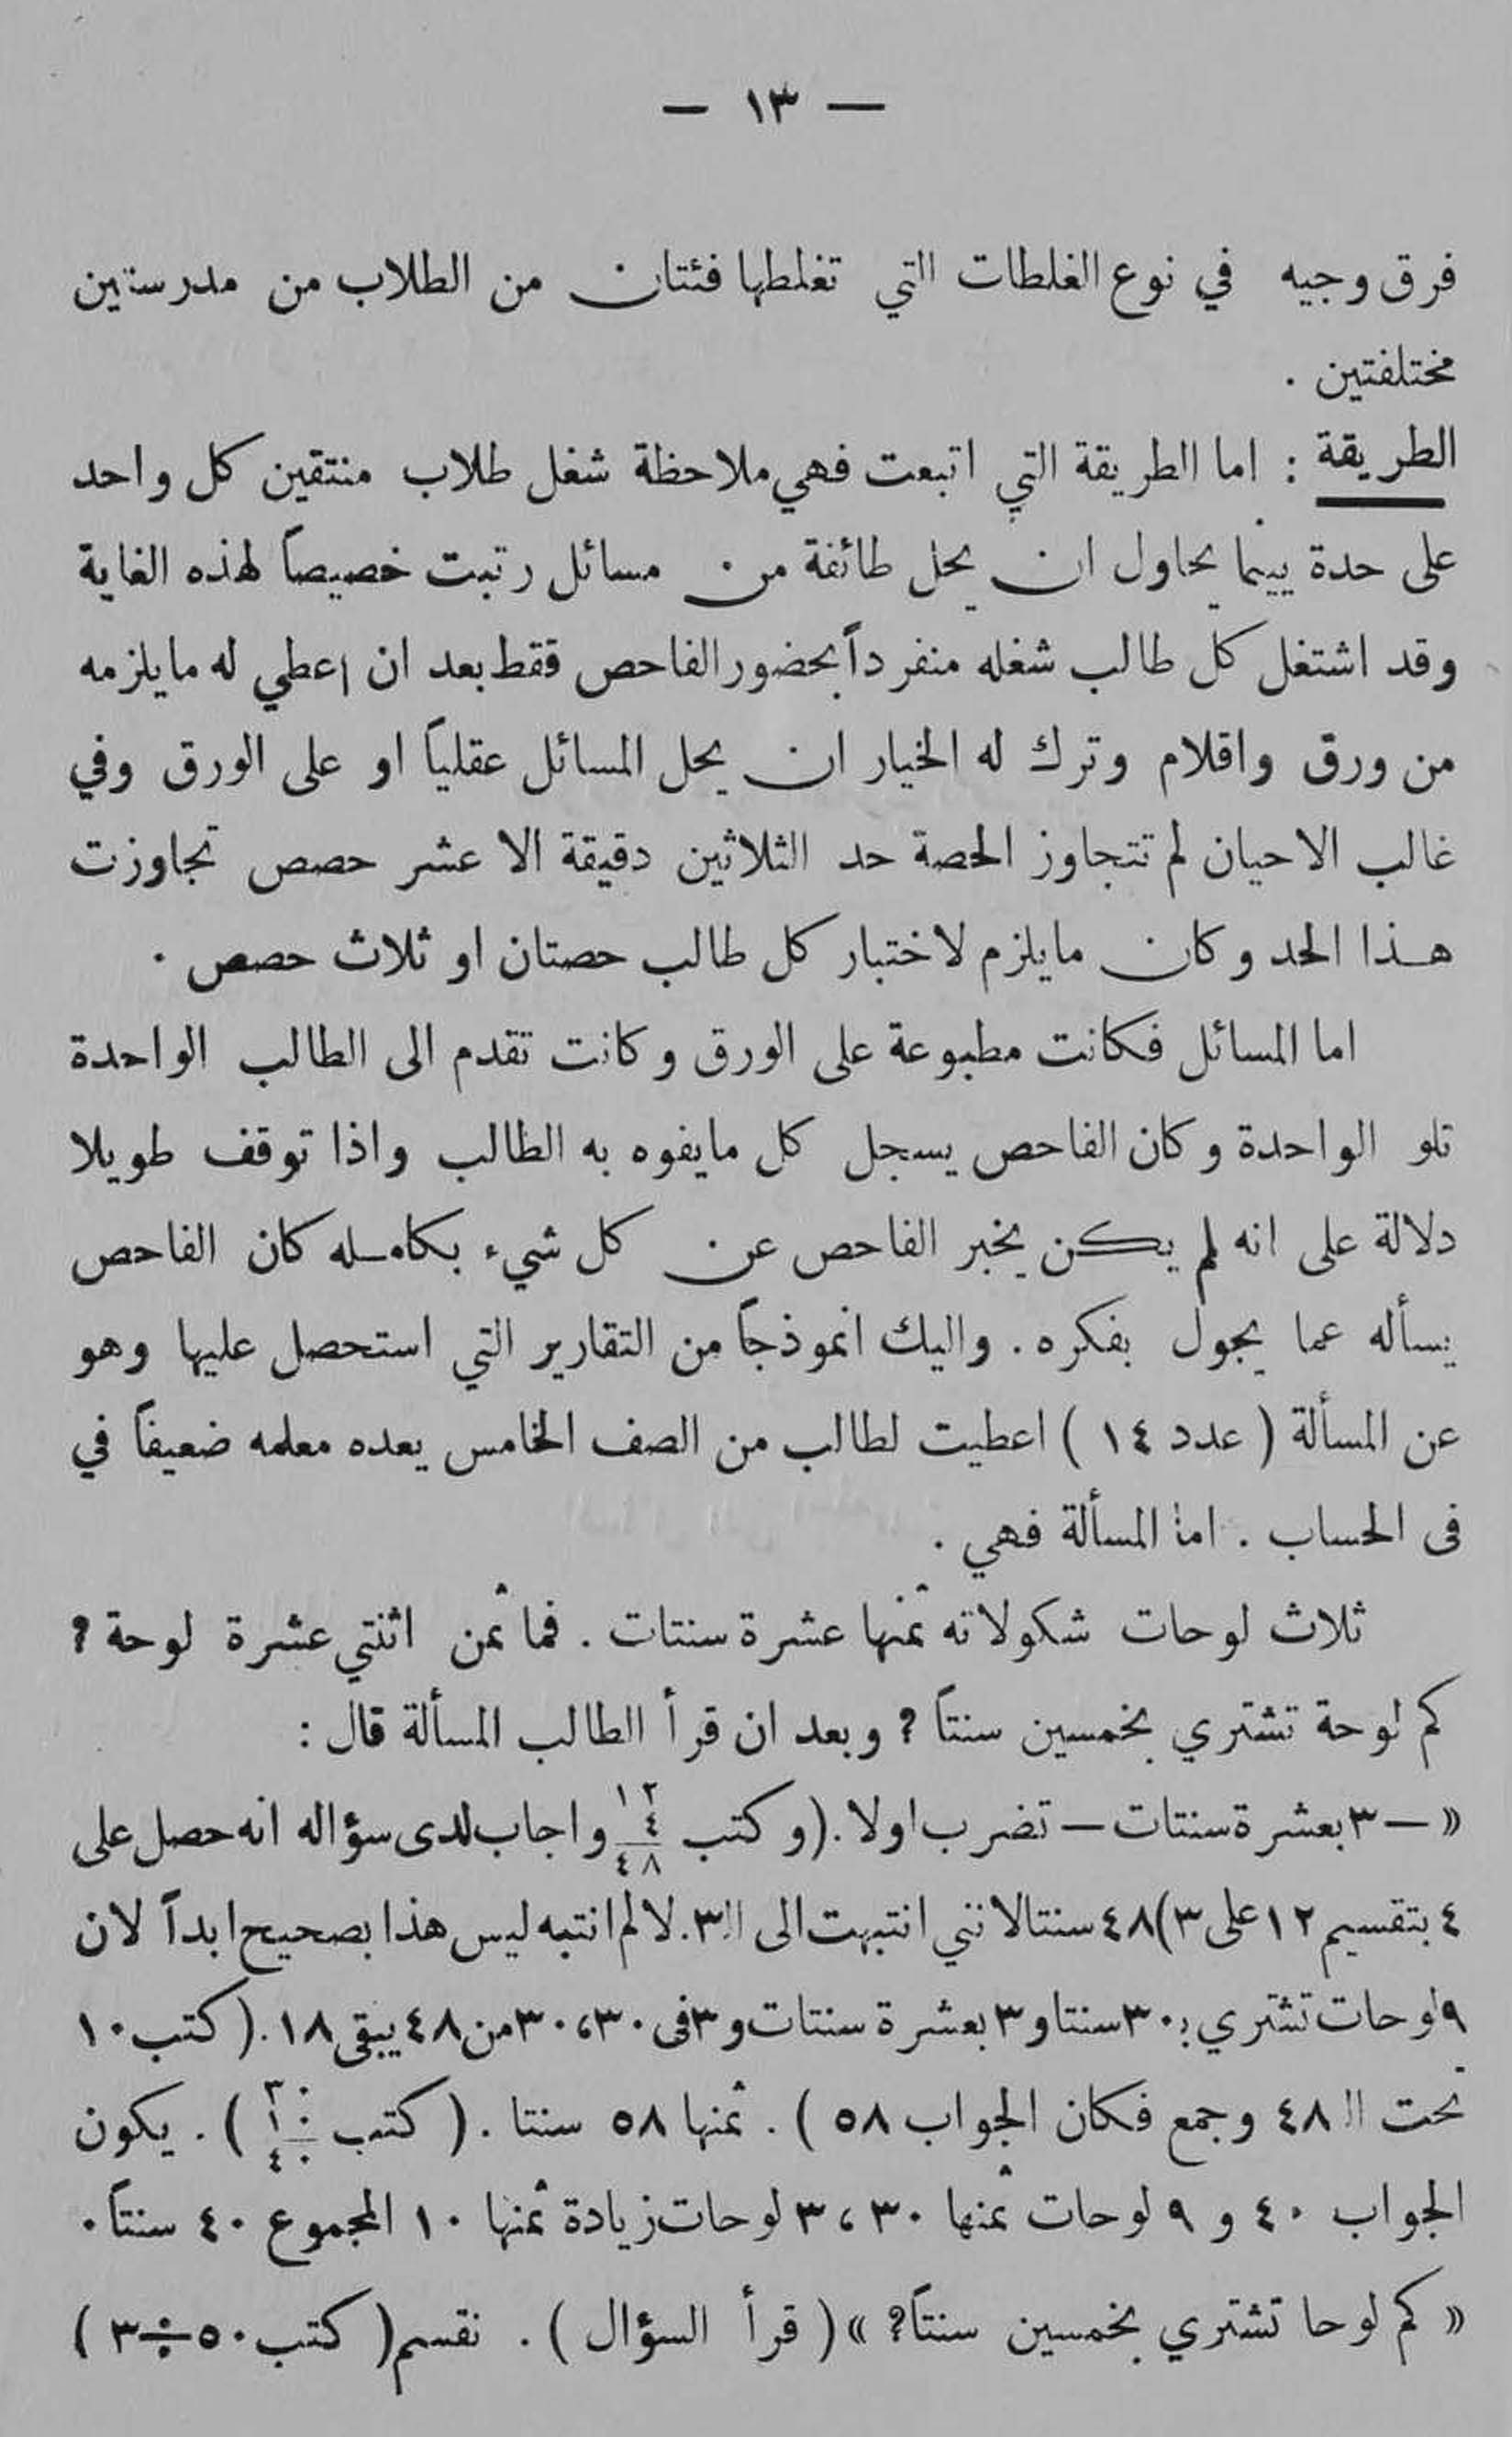 — ١٣ —
فرق وجيه في نوع الغلطات التي تغلطها فئتان من الطلاب من مدرستين
مختلفتين .
الطريقة : اما الطريقة التي اتبعت فهي ملاحظة شغل طلاب منتقين كل واحد
على حدة بينما يحاول ان يحل طائفة من مسائل رتبت خصيصاً لهذه الغاية
وقد اشتغل كل طالب شغله منفرداً بحضور الفاحص فقط بعد ان اعطي له مايلزمه
من ورق واقلام وترك له الخيار ان يحل المسائل عقلياً او على الورق وفي
غالب الاحيان لم تتجاوز الحصة حد الثلاثين دقيقة الا عشر حصص تجاوزت
هذا الحد وكان مايلزم لاختبار كل طالب حصتان او ثلاث حصص .
اما المسائل فكانت مطبوعة على الورق وكانت تقدم الى الطالب الواحدة
تلو الواحدة وكان الفاحص يسجل كل مايفوه به الطالب واذا توقف طويلا
دلالة على انه لم يكن يخبر الفاحص عن كل شيء بكامله كان الفاحص
يسأله عما يجول بفكره . واليك انموذجاً من التقارير التي استحصل عليها وهو
عن المسألة ( عدد ١٤ ) اعطيت لطالب من الصف الخامس يعده معلمه ضعيفاً في
فى الحساب . اما المسألة فهي .
ثلاث لوحات شكولاته ثمنها عشرة سنتات . فما ثمن اثنتي عشرة لوحة ؟
كم لوحة تشتري بخمسين سنتاً ؟ وبعد ان قرأ الطالب المسألة قال :
« — ٣ بعشرة سنتات — تضرب اولا . (وكتب ١٢ ٤ ٤٨ واجاب لدى سؤاله انه حصل على
٤ بتقسيم ١٢ على ٣) ٤٨ سنتا لانني انتبهت الى الـ ٣. لا لم انتبه ليس هذا بصحيح ابداً لان
٩ لوحات تشتري بـ ٣٠ سنتا و ٣ بعشرة سنتات و ٣ فى ٣٠،٣٠ من ٤٨ يبقى ١٨. (كتب ١٠
تحت الـ ٤٨ وجمع فكان الجواب ٥٨ ) . ثمنها ٥٨ سنتا . ( كتب ٣٠ ١٠ ٤٠ ) . يكون
الجواب ٤٠ و ٩ لوحات ثمنها ٣٠ ، ٣ لوحات زيادة ثمنها ١٠ المجموع ٤٠ سنتاً .
« كم لوحا تشتري بخمسين سنتاً؟ » ( قرأ السؤال ) . نقسم ( كتب ٥٠ ÷ ٣ )